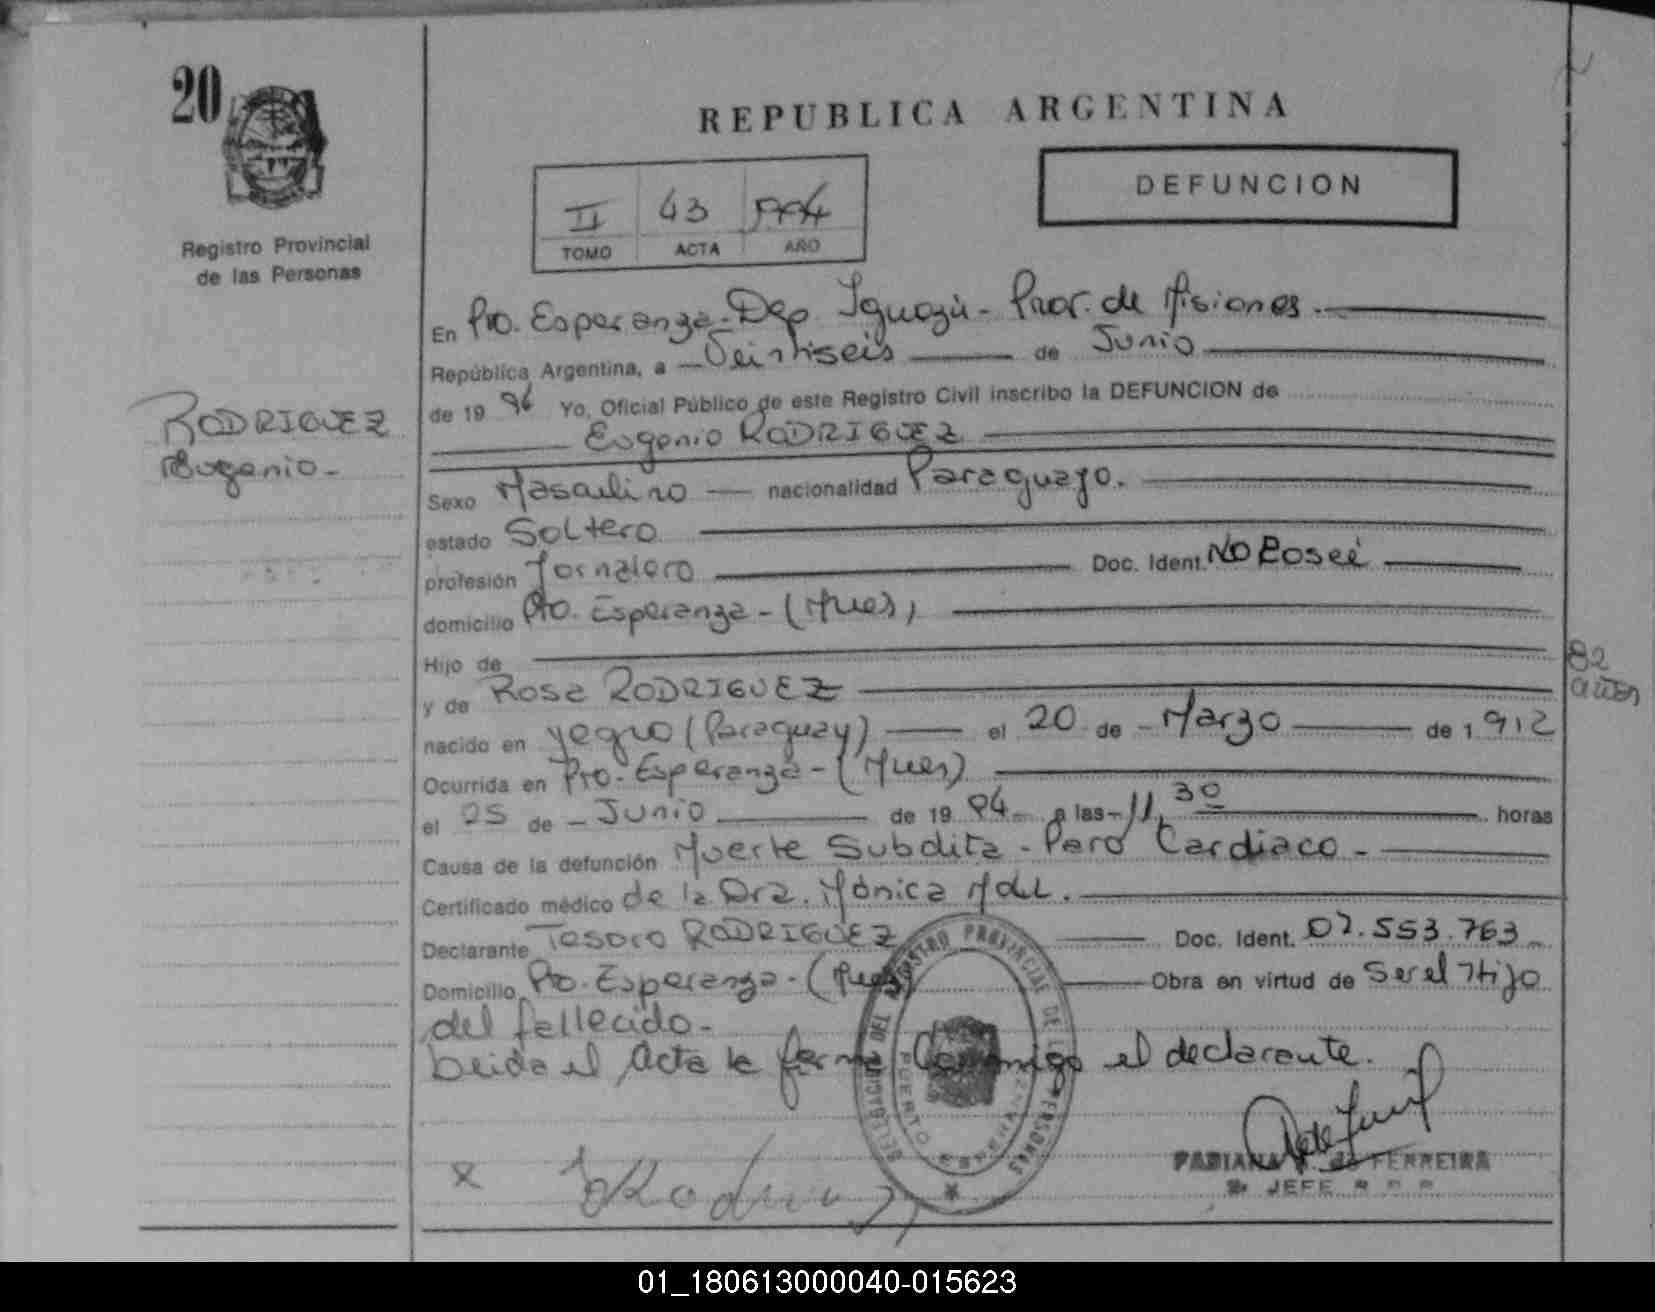 20
REPUBLICA ARGENTINA
DEFUNCION
II 43 1994
TOMO ACTA AÑO
Registro Provincial
de las Personas
RODRIGUEZ
Eugenio-
En Pto. Esperanza-Dep. Iguazú- Prov. de Misiones.
República Argentina, a Veintiseis de Junio
de 19 94 Yo, Oficial Público de este Registro Civil inscribo la DEFUNCION de
Eugenio RODRIGUEZ
Sexo Masculino nacionalidad Paraguayo.
estado Soltero
profesión Jornalero Doc. Ident. No Poseé
domicilio Pto. Esperanza-(Mnes)
Hijo de
82
años
y de Rosa RODRIGUEZ
nacido en Yegro (Paraguay) el 20 de Marzo de 1912
Ocurrida en Pto. Esperanza-(Mnes)
el 25 de Junio de 1994 a las 11,30 horas
Causa de la defunción Muerte Subdita-Paro Cardiaco-
Certificado médico de la Dra. Mónica
Declarante Tesoro RODRIGUEZ Doc. Ident. 07.553.763
Domicilio Pto. Esperanza-(Mnes) Obra en virtud de Ser el Hijo
del fallecido-
Leida el Acta la firma Conmigo el declarante.
DELEGACION DEL REGISTRO PROVINCIAL DE LAS PERSONAS
PUERTO ESPERANZA
x
FABIANA de FERREIRA
JEFE R P P
01_180613000040-015623